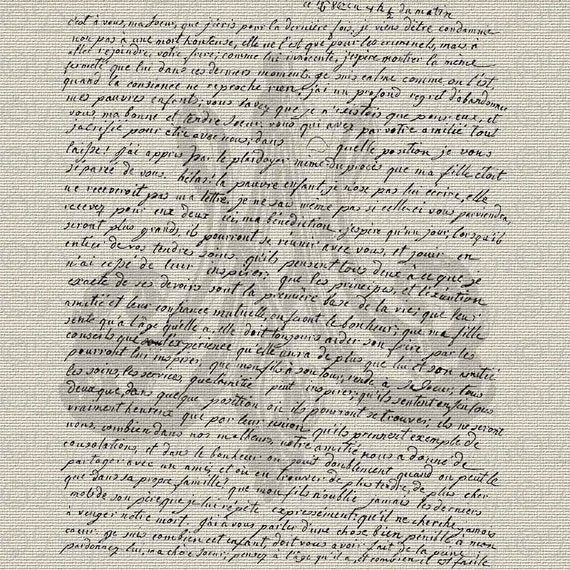 ce 4 ½ du matin
c'est à vous, ma soeur, que j'écris pour la dernière fois, je viens d'être condamnée
non pas a une mort honteuse, elle ne l'est que pour les criminels, mais à
aller rejoindre, votre frère; comme lui innocente, j'espère montrer la même
fermeté que lui dans ces derniers moments. je suis calme comme on l'est,
quand la consiance ne reproche rien, j'ai un profond regret d'abandonner
mes pauvres enfants; vous savez que je n'existois que pour eux, et
vous ma bonne et tendre soeur: vous qui avez par votre amitié tout
sacrifié pour être avec nous; dans quelle position je vous
laisse! j'ai appris par le plaidoyer même du procès que ma fille étoit
séparé de vous. hélas! la pauvre enfant, je n'ose pas lui écrire, elle
ne receveroit pas ma lettre. je ne sai même pas si celle ci vous parviendra,
recevez pour eux deux ici, ma bénédiction. j'espère qu'un jour, lorsqu'ils
seront plus grands, ils pourront se réunir avec vous, et jouir en
entier de vos tendres soins. qu'ils pensent tous deux à ce que je
n'ai cessé de leur inspirer; que les principes, et l'exécution
exacte de ses devoirs sont la première base de la vie; que leur
amitié et leur confiance mutuelle, en feront le bonheur; que ma fille
sente qu'a l'age qu'elle a, elle doit toujours aider son frère par les
conseils que l'expérience qu'elle aura de plus que lui et son amitié
pourront lui inspirer; que mon fils à son tour, rende à sa soeur, tous
les soins, les services, que l'amitié peut inspirer; qu'ils sentent enfin tous
deux que, dans quelque position où ils pourront se trouver, ils ne seront
vraiment heureux que par leur union qu'ils prennent exemple de
nous. combien dans nos malheurs, notre amitié nous a donné de
consolations, et dans le bonheur on jouit doublement quand on peut le
partager avec un ami; et où en trouver de plus tendre, de plus cher
que dans sa propre famille? que mon fils n'oublie jamais les derniers
mots de son père que je lui répète expressément; qu'il ne cherche jamais
à venger notre mort. j'ai à vous parler d'une chose bien pénible à mon
coeur. je sais combien cet enfant, doit vous avoir fait de la peine
pardonnez-lui, ma chère soeur; pensez à l'age qu'il a, et combien il est facile